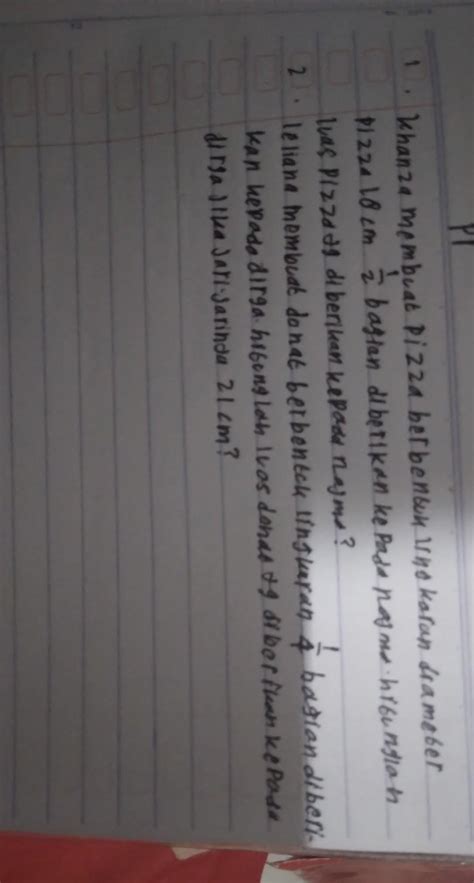 PI
1. Khanza membuat Pizza berbentuk lingkaran diameter
Pizza 18 cm 1/2 bagian diberikan kepada najma. hitunglah
luas Pizza yg diberikan kepada najma?
2. leliana membuat donat berbentuk lingkaran 1/4 bagian diberi-
kan kepada dirga. hitunglah luas donat yg diberikan kepada
dirga jika jari-jarinya 21 cm?